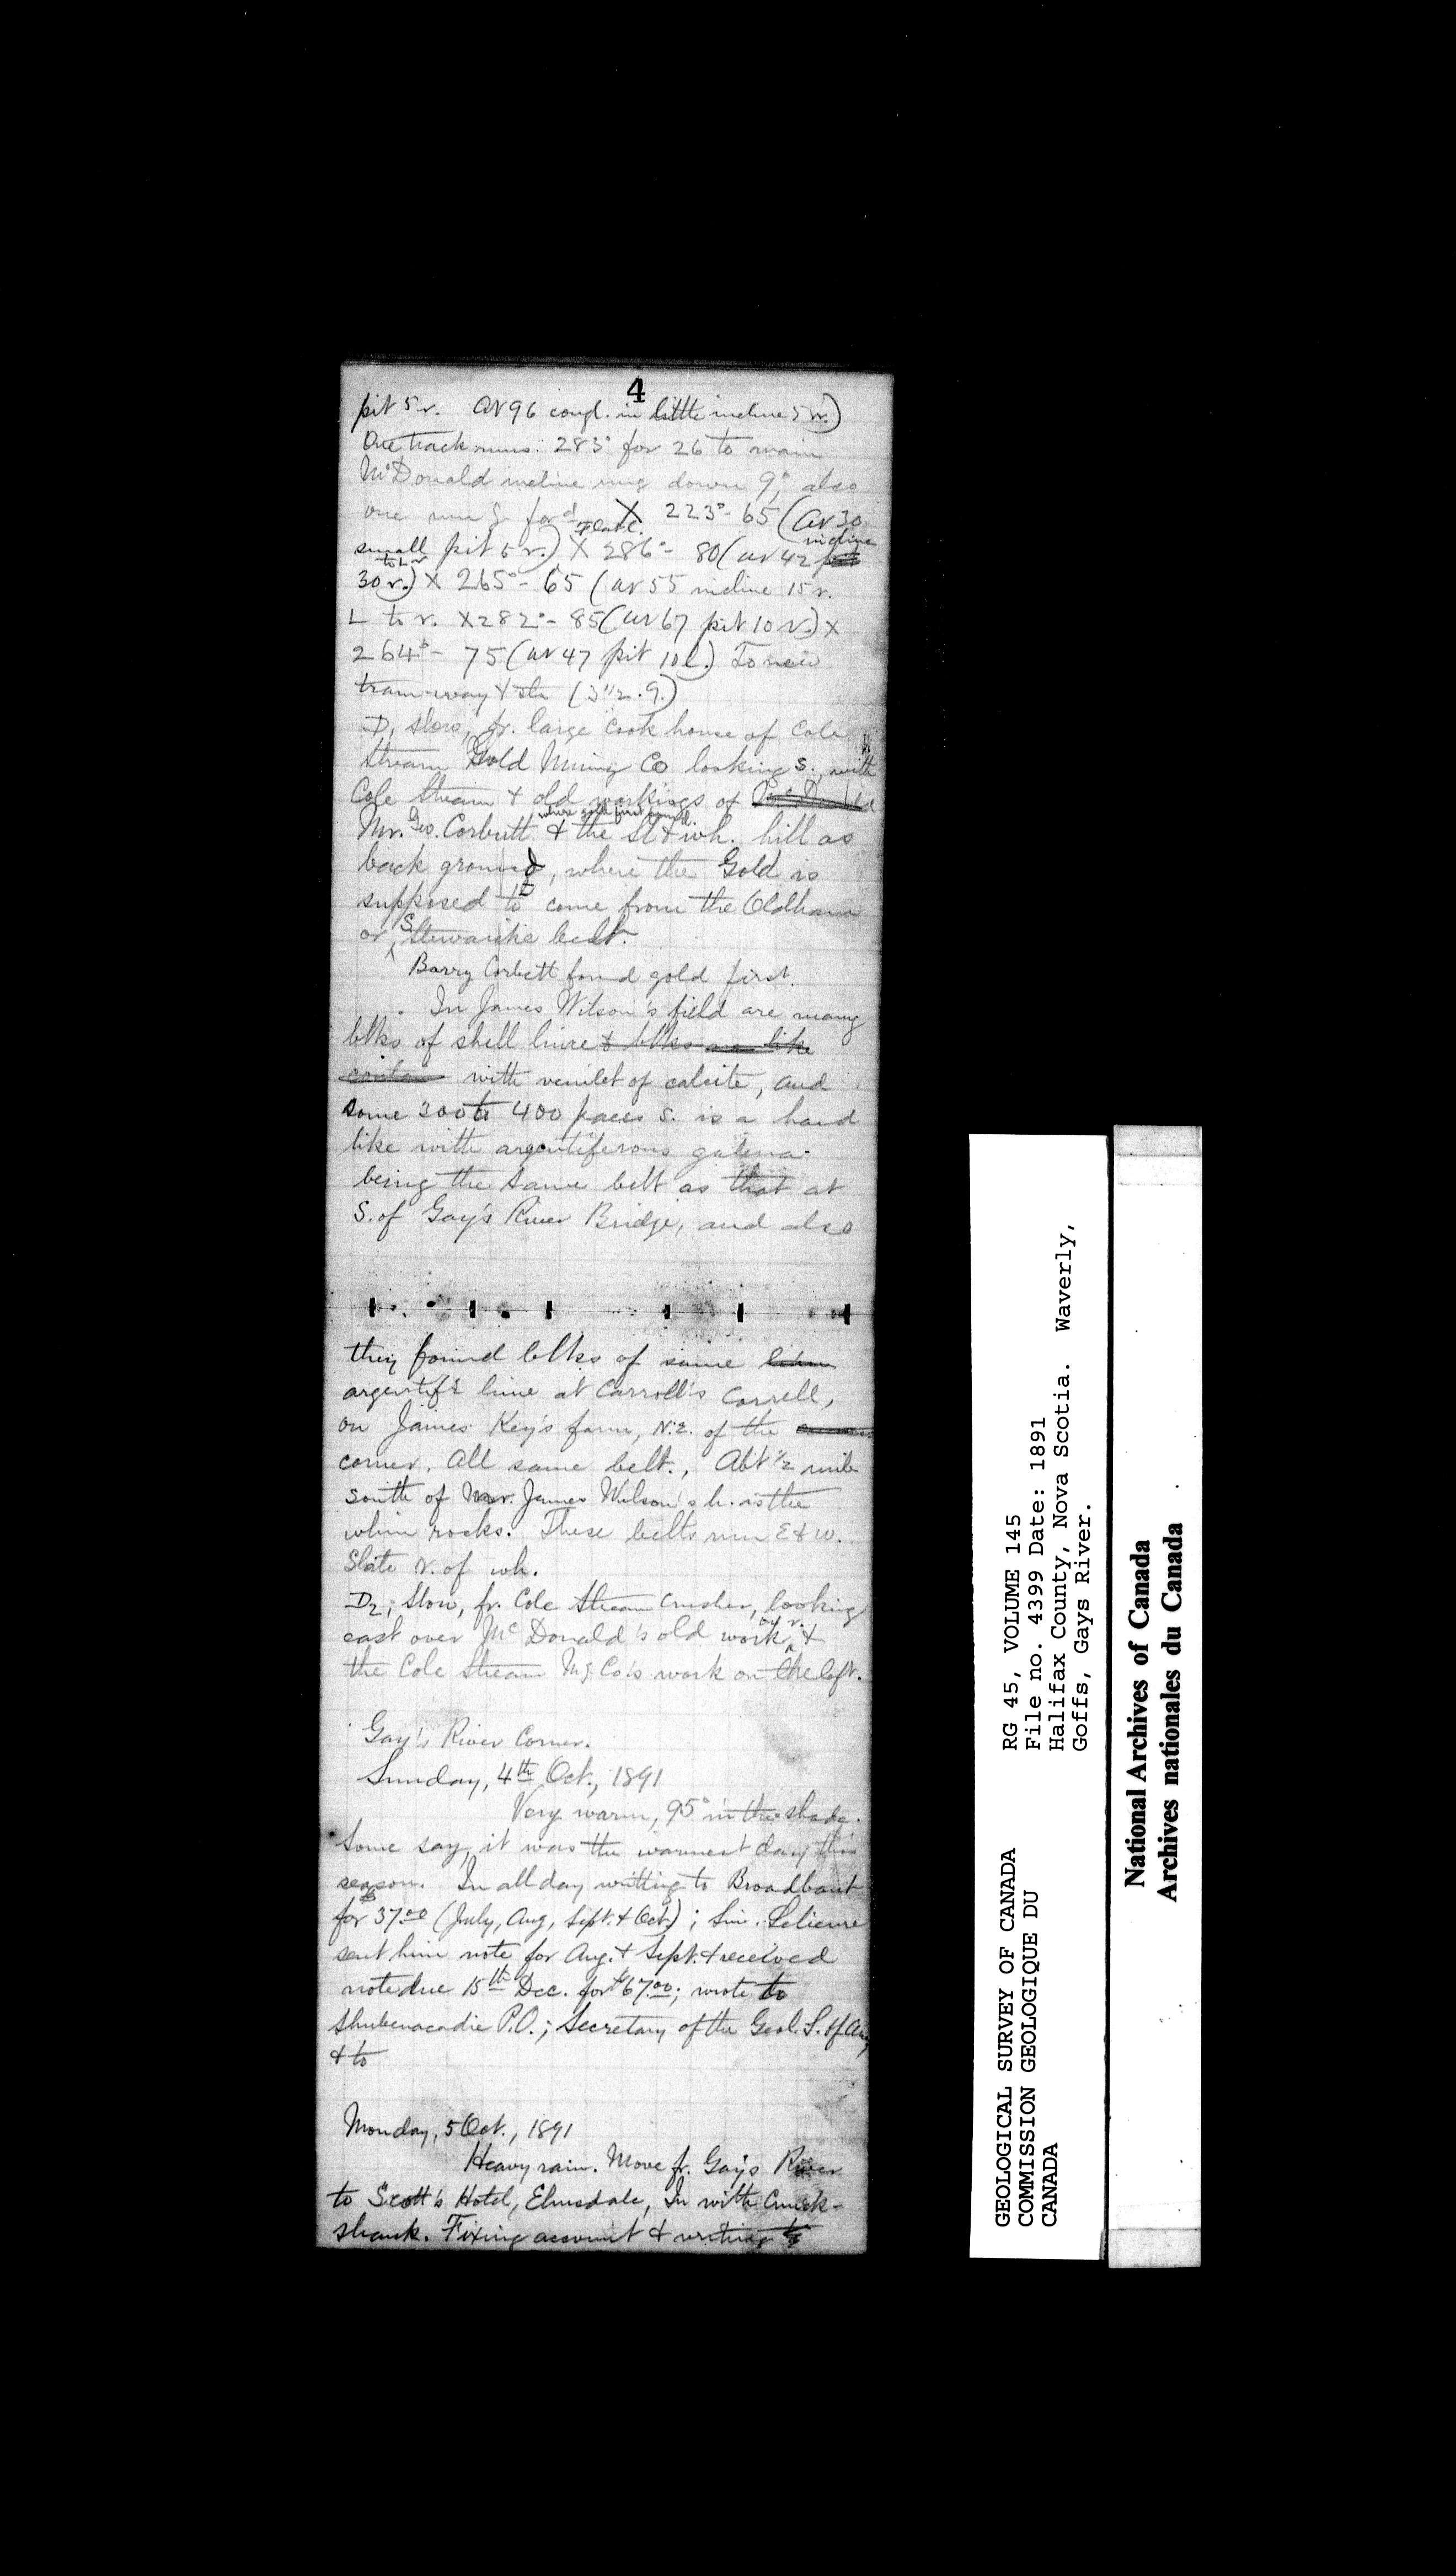 4
pit 5 r. at 96 congl. in little incline 5 r.)
One track runs 283° for 26 to main
McDonald incline rung down 9°, also
one rung ford X 223° - 65 (at 30
small pit 5 r.) X 286° - 80 (at 42 incline
30 r.) to L r X 265° - 65 (at 55 incline 15 r.
L to r. X 282° - 85 (at 67 pit 10 r.) X
264° - 75 (at 47 pit 10 l.) To new
tram-way & stn (3 1/2 . 9.)
D, slow, fr. large Cook house of Cole
Stream Gold Mining Co looking S., with
Cole Stream & old workings of
Mr. Geo. Corbett where gold first found. & the Sl & wh. hill as
back ground, where the Gold is
supposed to come from the Oldham
or Stewiacke belt.
Barry Corbett found gold first.
In James Wilson's field are many
blks of shell lime & blks like
with veinlet of calcite, and
some 300 to 400 paces S. is a hard
like with argentiferous galena
being the same belt as that at
S. of Gay's River Bridge, and also
they found blks of same
argentif. lime at Carroll's Correll,
on James Key's farm, N.E. of the
corner. All same belt., Abt 1/2 mile
south of Mr. James Wilson's h. is the
whin rocks. These belts run E & W.
Slate N. of wh.
D2; slow, fr. Cole Stream Crusher, looking
east over McDonald's old work on r. &
the Cole Stream Mg Co's work on the left.
Gay's River Corner.
Sunday, 4th Oct., 1891
Very warm, 95° in the shade.
Some say, it was the warmest day this
season. In all day writting to Broadbent
for $37.00 (July, Aug, Sept. & Oct.); Sim. Lelievre
sent him note for Aug. & Sept. & received
note due 15th Dec. for $67.00; wrote to
Shubenacadie P.O.; Secretary of the Geol. S. of Am,
& to
Monday, 5 Oct., 1891
Heavy rain. Move fr. Gay's River
to Scott's Hotel, Elmsdale, In with Cruick-
shank. Fixing account & writing to
GEOLOGICAL SURVEY OF CANADA
COMMISSION GEOLOGIQUE DU
CANADA
RG 45, VOLUME 145
File no. 4399 Date: 1891
Halifax County, Nova Scotia. Waverly,
Goffs, Gays River.
National Archives of Canada
Archives nationales du Canada